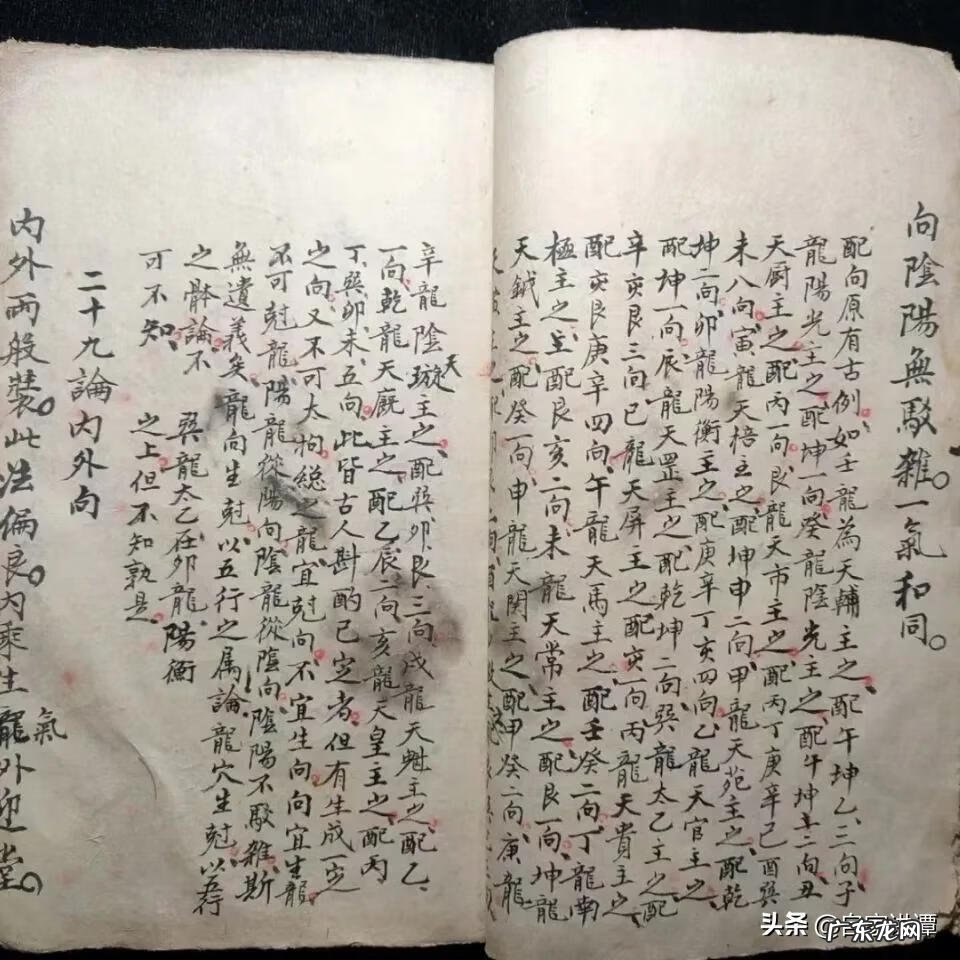 向陰陽無駁雜。一氣和同。
配向原有古例、如壬龍為天輔主之、配午坤乙、三向、子
龍陽光主之、配坤一向、癸龍陰光主之、配午坤二向、丑
天厨主之、配丙一向、艮龍天市主之、配丙丁庚辛巳酉巽
未八向、寅龍天棓主之、配坤申二向、甲龍天苑主之、配乾
坤二向、卯龍陽衡主之、配庚辛丁亥四向、乙龍天官主之、
配坤一向、辰龍天罡主之、配乾坤二向、巽龍太乙主之、配
辛亥艮三向、巳龍天屏主之、配亥一向、丙龍天貴主之、
配亥艮庚辛四向、午龍天馬主之、配壬癸二向、丁龍南
極主之、配艮亥二向、未龍天常主之、配艮一向、坤龍
天鉞主之、配癸一向、申龍天関主之、配甲癸二向、庚龍
辛龍陰璇主之、配巽卯艮、三向、戌龍天魁主之、配乙、
天
一向、乾龍天厩主之、配乙辰二向、亥龍天皇主之、配丙
丁、巽卯未、五向、此皆古人斟酌已定者、但有生成一定
之向、又不可太拘、総之、龍宜尅向、不宜生向、向宜生龍
不可尅龍、陽龍從陽向、陰龍從陰向、陰陽不駁雜、斯
無遺義矣、龍向生尅、以五行之属論、龍穴生尅、以五行
之骵論、不
可不知、
巽龍太乙、在卯龍、陽衡
之上、但不知孰是、
二十九論内外向
内外兩般裝。此法偏良。内乘生龍外迎堂。
氣
头条 @名家讲谭
广东龙网